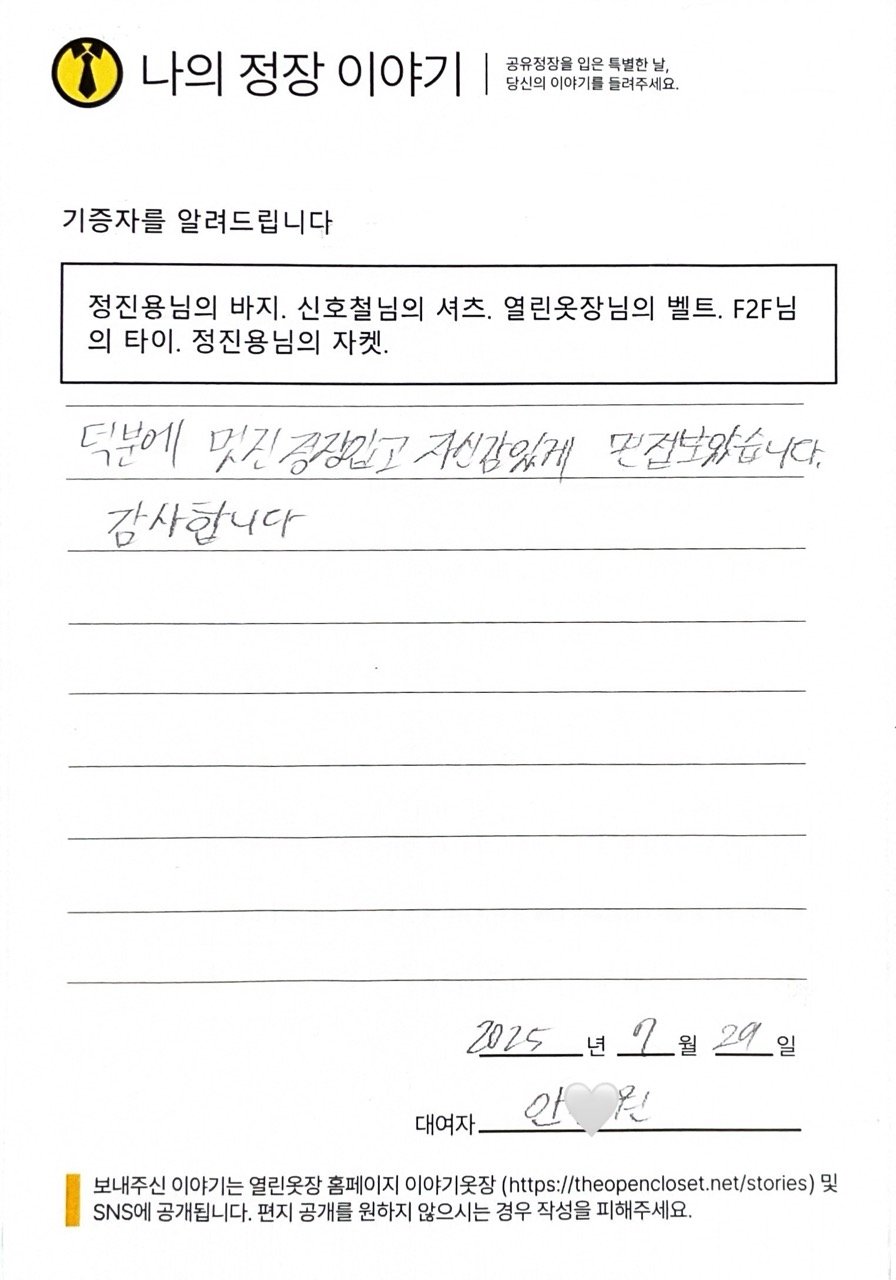 나의 정장 이야기
공유정장을 입은 특별한 날,
당신의 이야기를 들려주세요.
기증자를 알려드립니다
정진용님의 바지. 신호철님의 셔츠. 열린옷장님의 벨트. F2F님
의 타이. 정진용님의 자켓.
덕분에 멋진 정장입고 자신감있게 면접보았습니다.
감사합니다
2025 년 7 월 29 일
대여자 안
보내주신 이야기는 열린옷장 홈페이지 이야기옷장 (https://theopencloset.net/stories) 및
SNS에 공개됩니다. 편지 공개를 원하지 않으시는 경우 작성을 피해주세요.